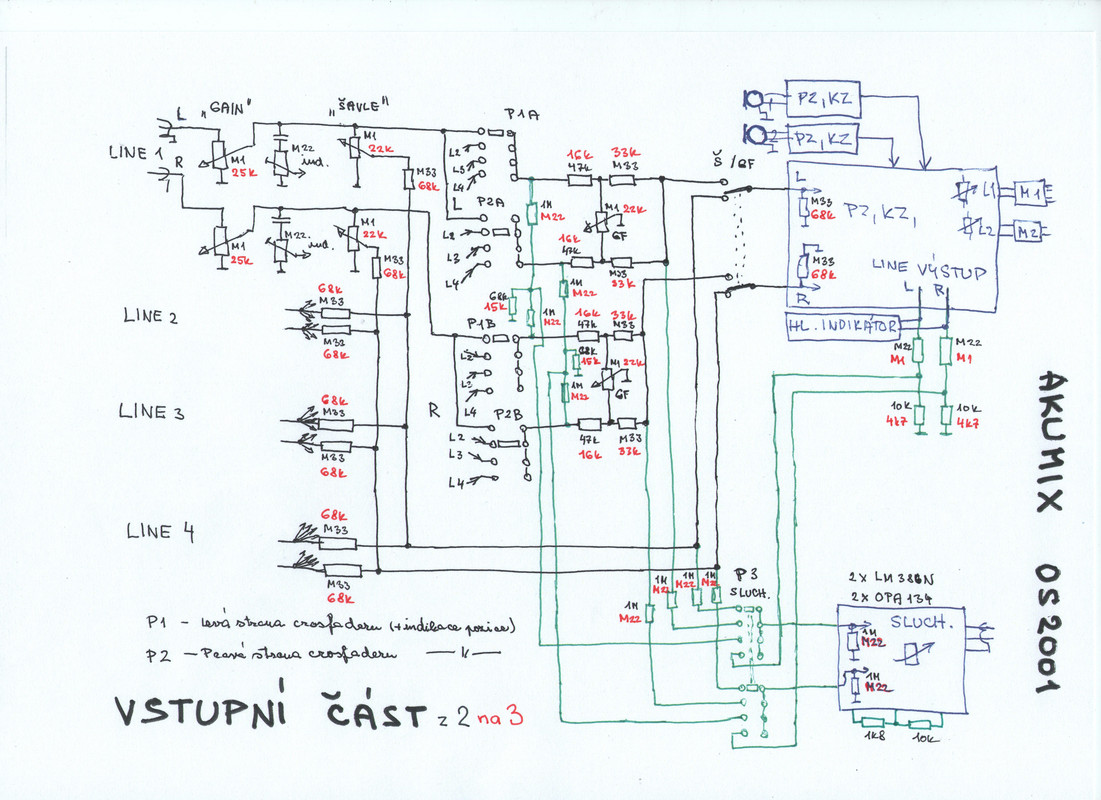 „GAIN"
„ŠAVLE"
P1A
L
R
LINE 1
M1
25k
M22
ind.
M1
22k
M33
68k
M1
25k
M22
ind.
M1
22k
M33
68k
L2
L3
L4
L
P2A
L2
L3
L4
1M
M22
16k
47k
33k
M33
M1 22k
GF
16k
47k
M33
33k
Š/GF
1M
M22
68k
15k
1M
M22
P1B
L2
L3
L4
R
P2B
L2
L3
L4
16k
47k
33k
M33
68k
15k
M1 22k
GF
1M
M22
47k
16k
M33
33k
LINE 2
68k
M33
M33
68k
LINE 3
68k
M33
M33
68k
LINE 4
68k
M33
M33
68k
P2,KZ
P2,KZ
L
M33
68k
P2,KZ,
M33
68k
R
L1
L2
M1
M2
LINE VÝSTUP
L R
HL. INDIKÁTOR
M22
M1
M22
M1
10k
4k7
10k
4k7
AKUMIX OS2001
1M
M22
1M
M22
1M
M22
1M
M22
P3
SLUCH.
2x LM386N
2x OPA134
SLUCH.
1M
M22
1M
M22
1k8
10k
P1 - levá strana crosfaderu (+indikace pozice)
P2 - Pravá strana crosfaderu —||—
VSTUPNÍ ČÁST z 2 na 3